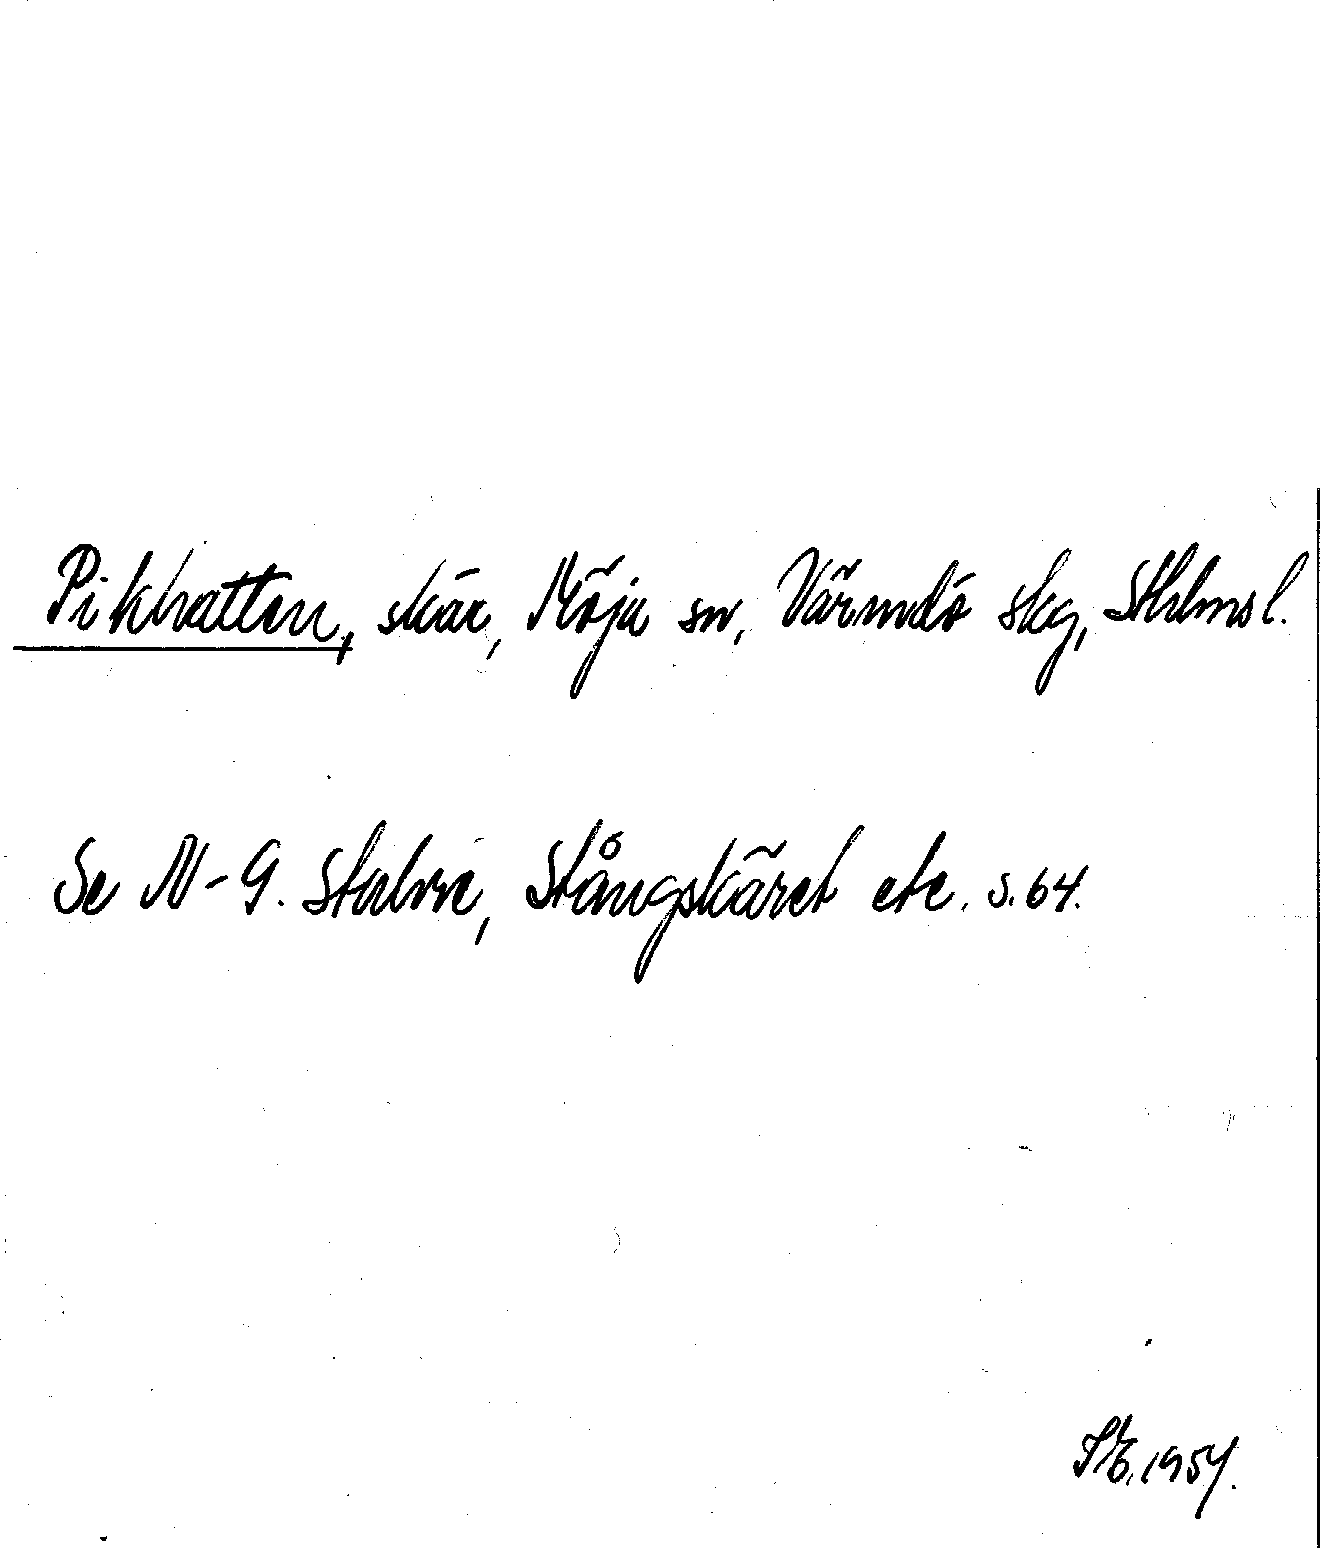 Pikhatten, skär, Möja sn, Värmdö skg, Sthlms l.
Se N-G. Stahre, Stångskäret etc. s. 64.
1954.